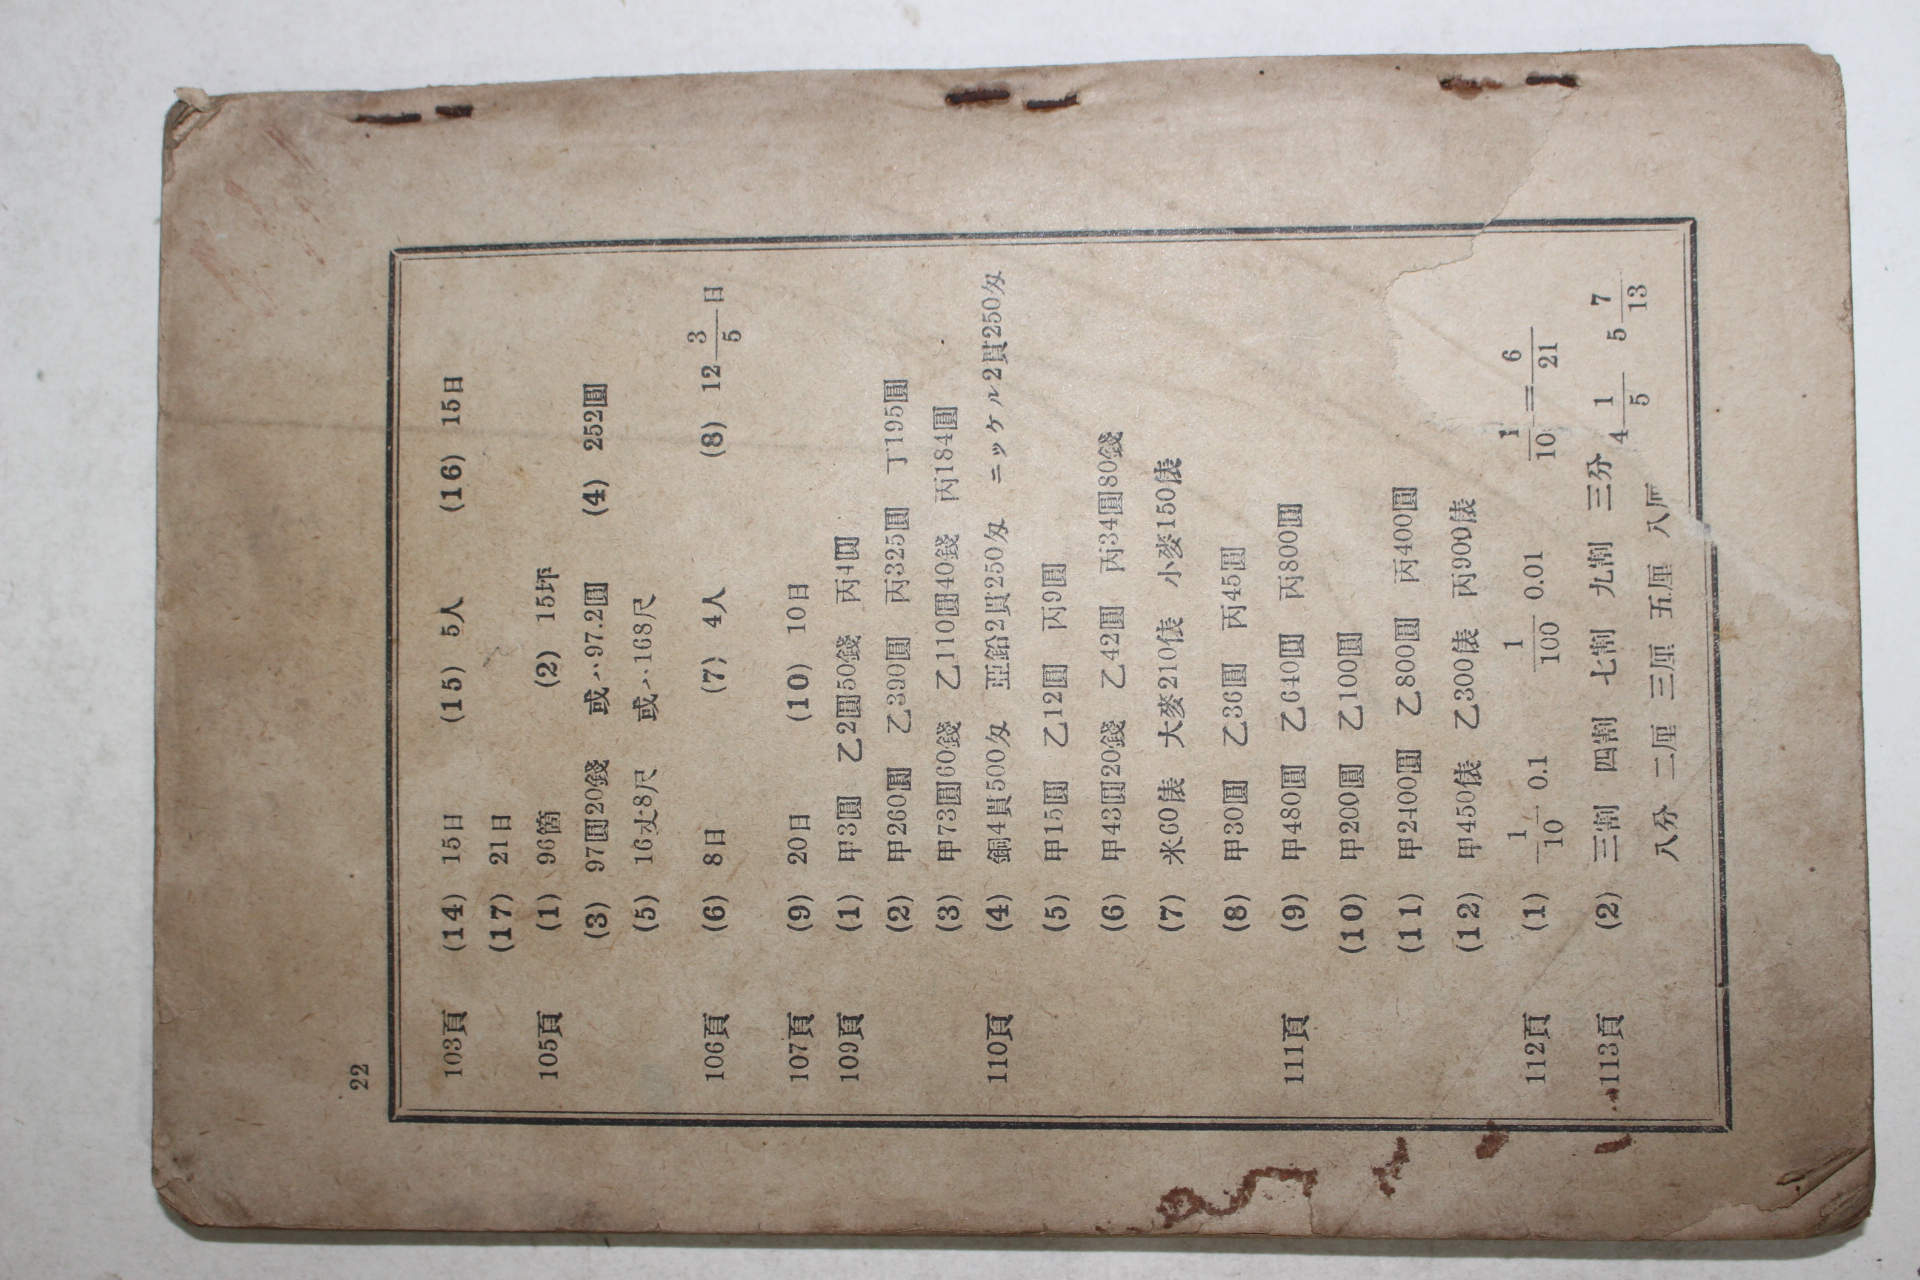 22
103頁 (14) 15日 (15) 5人 (16) 15日
(17) 21日
105頁 (1) 96箇 (2) 15坪
(3) 97圓20錢 或ハ97.2圓 (4) 252圓
(5) 16丈8尺 或ハ168尺
106頁 (6) 8日 (7) 4人 (8) 12 3/5 日
107頁 (9) 20日 (10) 10日
109頁 (1) 甲3圓 乙2圓50錢 丙4圓
(2) 甲260圓 乙390圓 丙325圓 丁195圓
(3) 甲73圓60錢 乙110圓40錢 丙184圓
110頁 (4) 銅4貫500匁 亞鉛2貫250匁 ニッケル2貫250匁
(5) 甲15圓 乙12圓 丙9圓
(6) 甲43圓20錢 乙42圓 丙34圓80錢
(7) 米60俵 大麥210俵 小麥150俵
(8) 甲30圓 乙36圓 丙45圓
111頁 (9) 甲480圓 乙640圓 丙800圓
(10) 甲200圓 乙100圓
(11) 甲2400圓 乙800圓 丙400圓
(12) 甲450俵 乙300俵 丙900俵
112頁 (1) 1/10 0.1 1/100 0.01 1/10 = 6/21
113頁 (2) 三割 四割 七割 九割 三分 4 1/5 5 7/13
八分 二厘 三厘 五厘 八厘